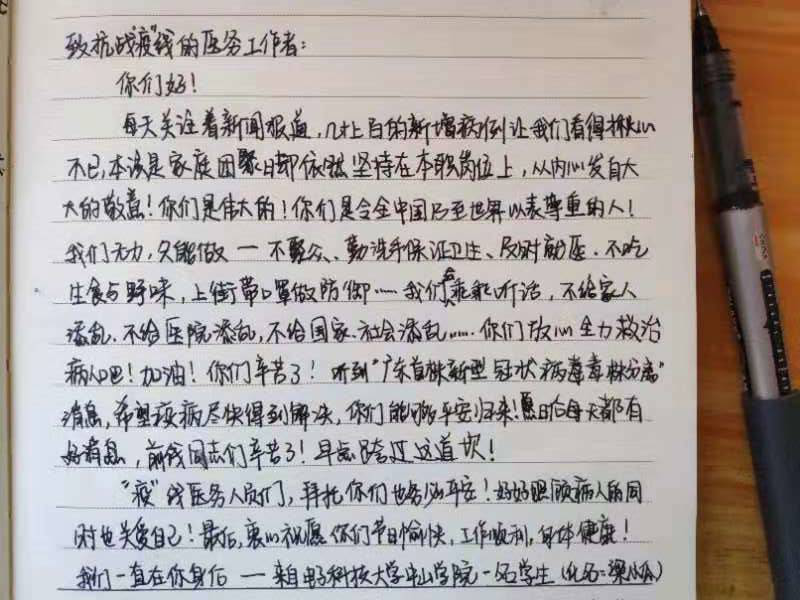 致抗战"疫"线的医务工作者：
你们好！
每天关注着新闻报道，几十上百的新增病例让我们看得揪心
不已，本该是家庭团聚日却依然坚持在本职岗位上，从内心发自大
大的敬意！你们是伟大的！你们是令全中国乃至世界以表尊重的人！
我们无力，只能做一不聚众、勤洗手保证卫生、及时就医、不吃
生食与野味，上街带口罩做防御……我们会乖乖听话，不给家人
添乱、不给医院添乱，不给国家、社会添乱……你们放心全力救治
病人吧！加油！你们辛苦了！听到"广东首株新型冠状病毒毒株分离"
消息，希望疫病尽快得到解决，你们能够平安归来！愿日后每天都有
好消息，前线同志们辛苦了！早点跨过这道坎！
"疫"线医务人员们，拜托你们也务必平安！好好照顾病人的同
时也关爱自己！最后，衷心祝愿你们节日愉快，工作顺利，身体健康！
我们一直在你身后 — 来自电子科技大学中山学院一名学生（化名：梁小瓜）